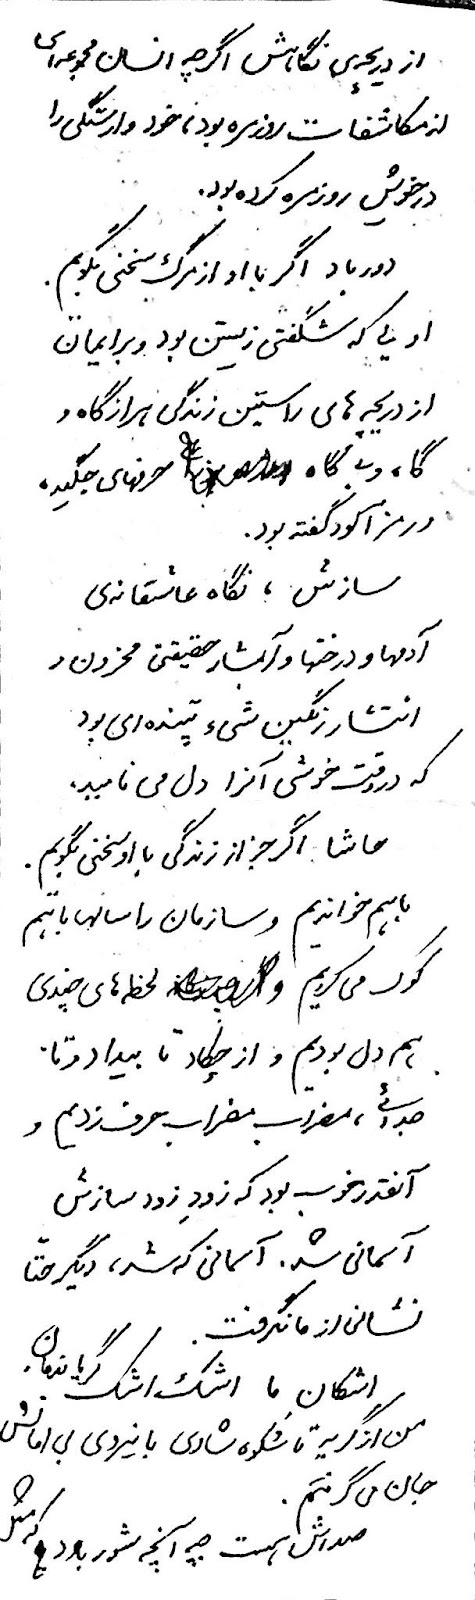 از دریچه‌ی نگاهش اگرچه انسان مجموعه‌ای
از مکاشفات روزمره بود، خود وارستگی را
در خویش روزمره کرده بود.
دور باد اگر با او از مرگ سخنی بگویم.
او یی که شگفتی زیستن بود و برایمان
از دریچه‌های راستین زندگی هر از گاه و
گاه و بی گاه حرفهای چکیده،
و رمزآلود گفته بود.
سازش، نگاه عاشقانه‌ی
آدمها و درختها و آبشار حقیقتی محزون و
انتشار رنگین شیء تپنده‌ای بود
که در وقت خوشی آنرا دل می نامید.
حاشا اگر جز از زندگی با او سخنی بگویم.
باهم خواندیم و سازمان را سالها باهم
کوک می‌کردیم و لحظه‌های چندی
هم دل بودیم و از چکاد تا بیداد و تا
جدائی، مضراب مضراب حرف زدیم و
آنقدر خوب بود که زودِ زود سازش
آسمانی شد. آسمانی که شد، دیگر حتّا
نشانی از ما نگرفت.
اشکان ما اشک اشک گریاندمان.
من از گریه تا شکوه شادی با نیروی بی امانش
جان می‌گرفتم.
صداش هست چه آنچه شور بود که مثل